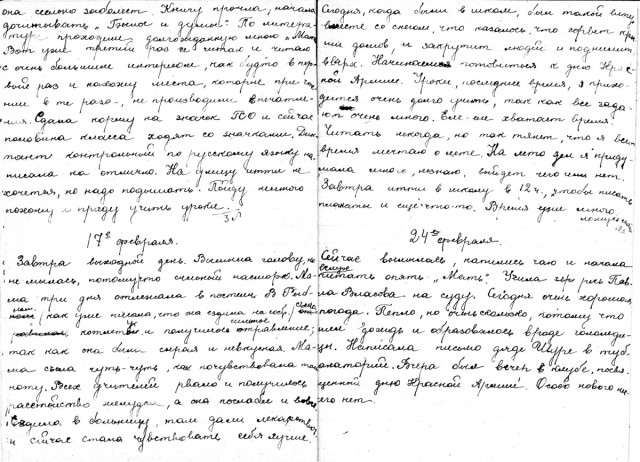 она сильно заболеет. Книгу прочла, начала
дочитывать „Гению и
По литера-
туре проходим долгожданную мною „Мать".
Вот уже третий раз её читаю и читаю
с очень большим интересом, как будто в пер-
вый раз и нахожу места, которые при чте-
нии в те разы, не производили впечатле-
ния. Сдала норму на значок ГСО и сейчас
половина класса ходят со значками. Дик-
тант контрольный по русскому языку на-
писала на отлично. На улицу итти не
хочется, но надо подышать. Пойду немного
похожу и приду учить уроки.
17го февраля.
Завтра выходной день. Вымыла голову, но
не мылась, потому что сильный насморк. Ма-
ма три дня отлежала в постели. В
как уже писала, что она ездила на
котлеты и получилось сильное отравление;
так как она была сырая и невкусная. Ма-
ма съела чуть-чуть, как почувствовала тош-
ноту. Всех учителей рвало и получилось
расстройство желудка, а она послабее и вовсе.
Ездила в больницу, там дали лекарство
и сейчас стала чувствовать себя лучше.
Сегодня, когда были в школе, был такой ветер
вместе со снегом, что казалось, что сорвет кры-
ши домов, и закрутит людей и поднимет
вверх. Начинаем готовиться к дню Крас-
ной Армии. Уроки, последнее время, прихо-
дится очень долго учить, так как все зада-
ют очень много. Еле-еле хватает время.
Читать некогда, но так тянет, что я всё
время мечтаю о лете. На лето дел я приду-
мала много, незнаю, выйдет чего или нет.
Завтра итти в школу в 12 ч., чтобы писать
плакаты и еще что-то. Время уже много,
24го февраля.
Сейчас вымылась, напилась чаю и начала
читать опять „Мать". Учила речь Пав-
ла Власова на суду. Сегодня очень хорошая
погода. Тепло, но очень скользко, потому что
шел дождь и образовалось вроде гололеди-
цы. Написала письмо дяде Шуре в туб.
санаторий. Вчера был вечер в клубе, посвя-
щенный дню Красной Армии. Особо нового ни-
чего нет.